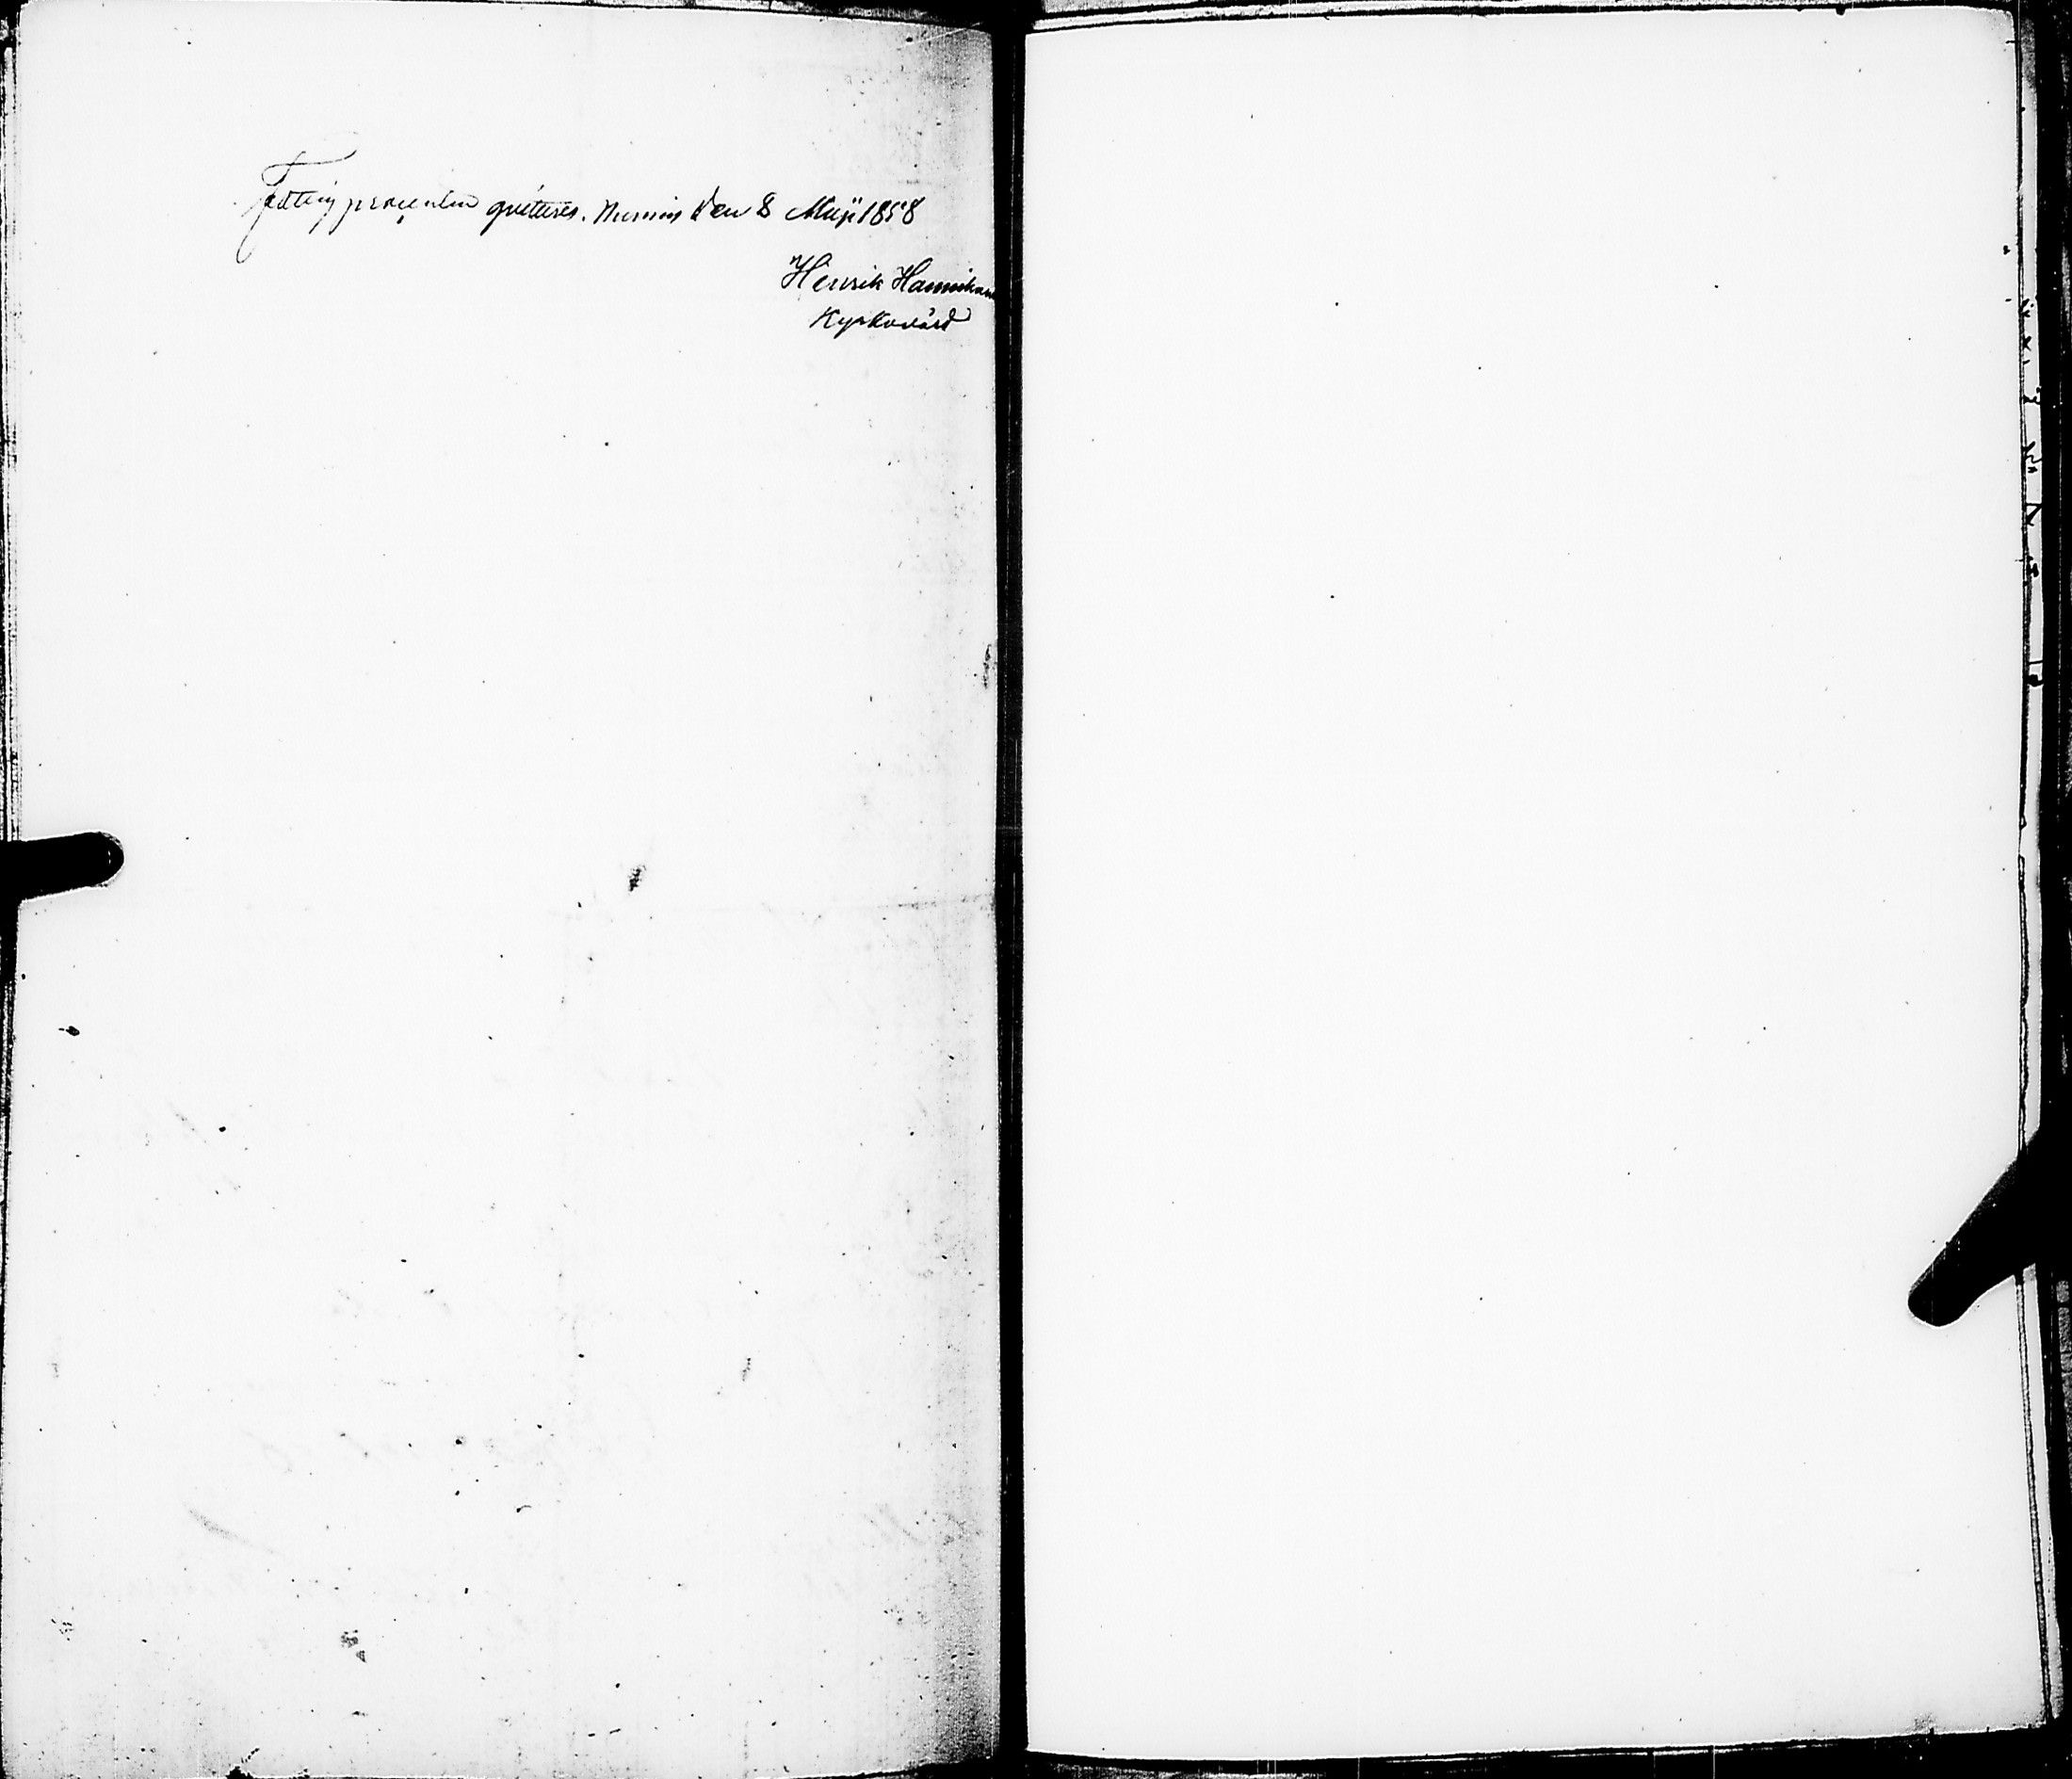 Fattig procenten qvitteres. Nurmis den 8 Maji 1858
Henrik Hannikain
Kyrkovärd